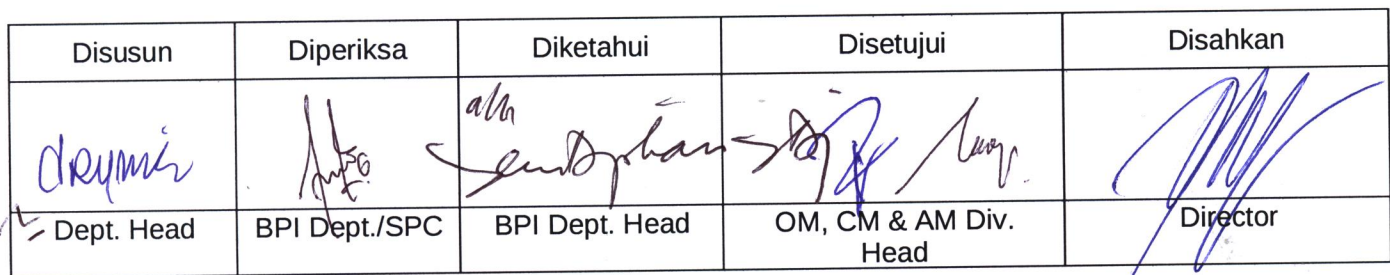 Disusun Diperiksa Diketahui Disetujui Disahkan
a/n
Dept. Head BPI Dept./SPC BPI Dept. Head OM, CM & AM Div. Head Director